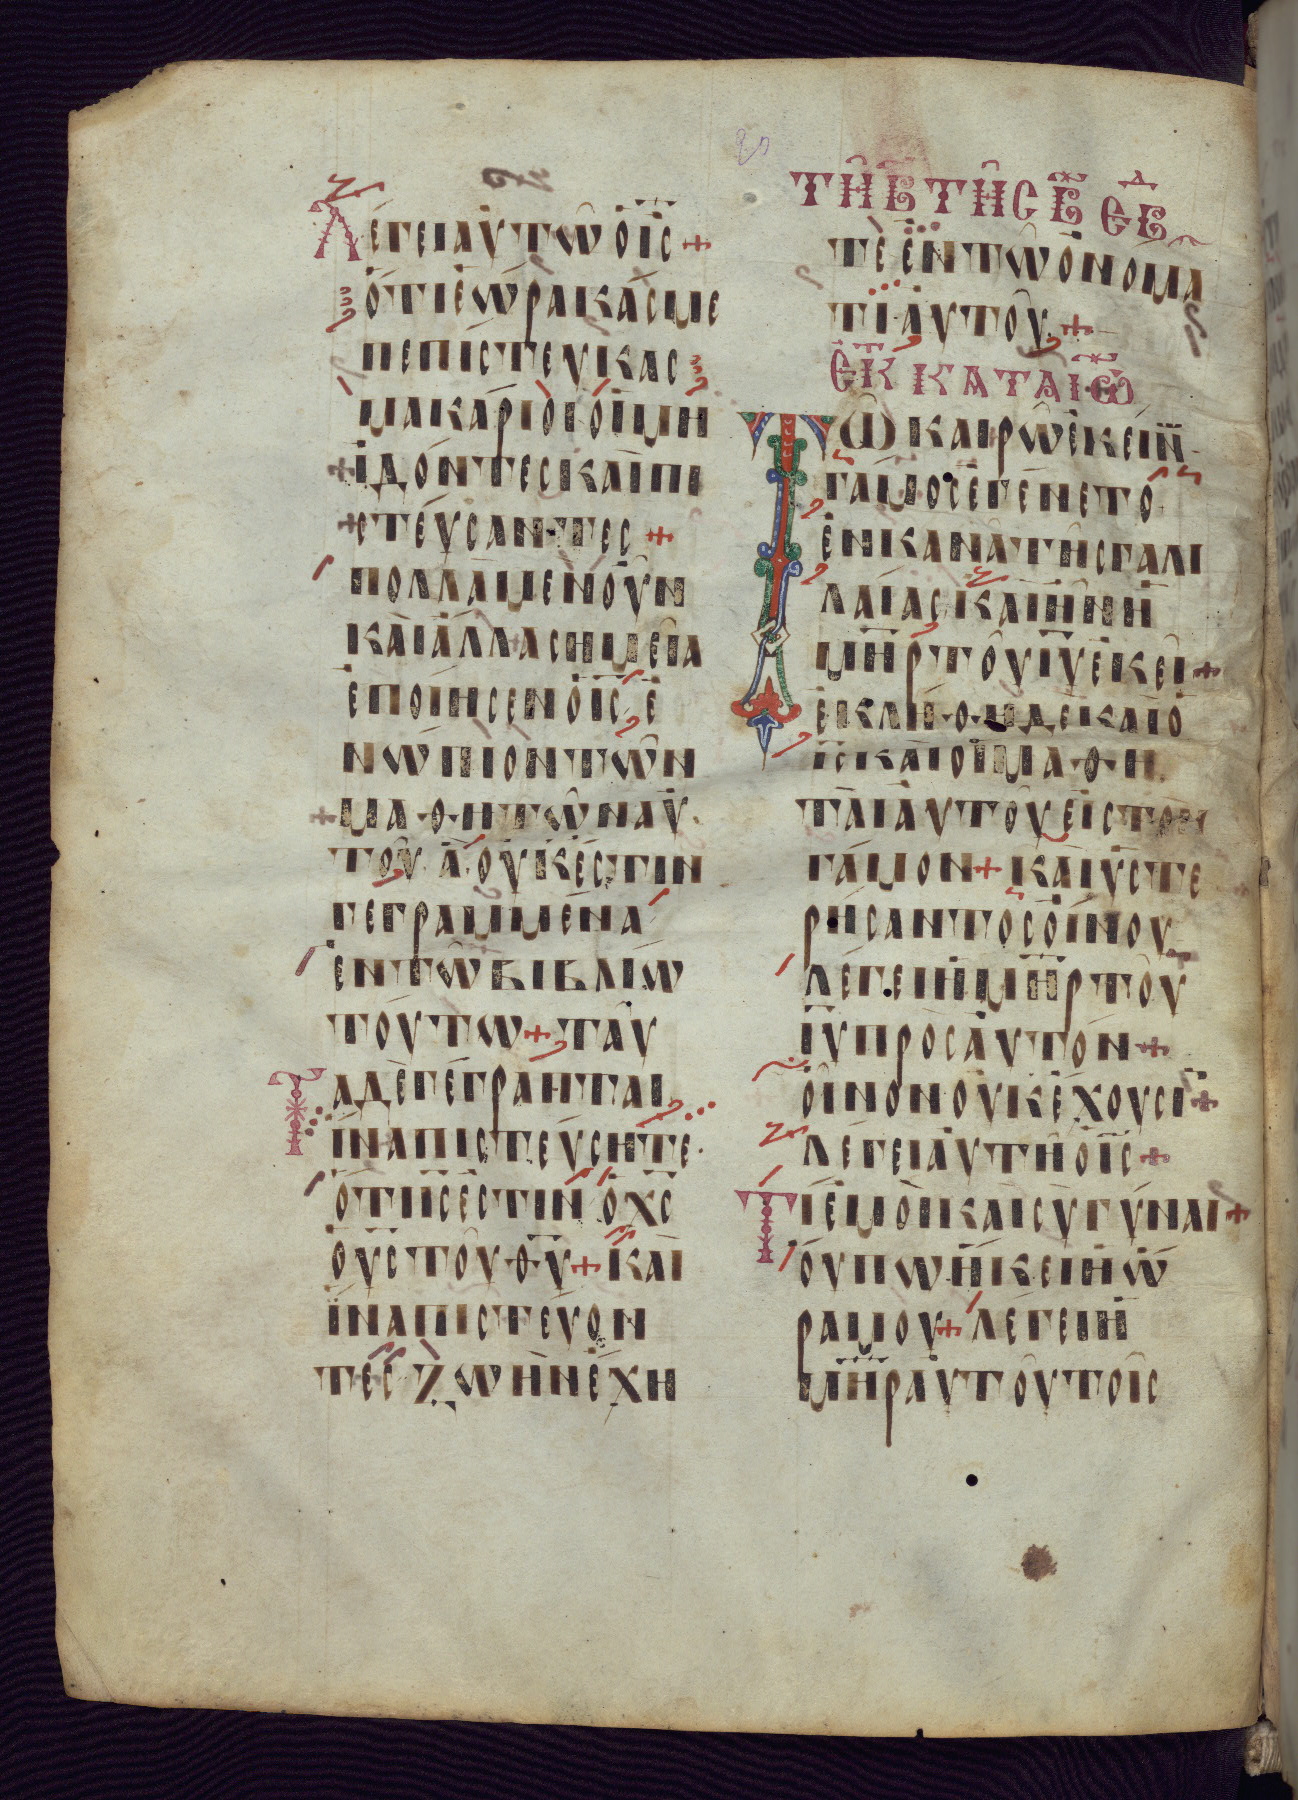 ΛΕΓΕΙ ΑΥ̓ΤΩ͂ Ὁ ΙC +
ὍΤΙ ἙΩΡΑΚΑC ΜΕ
ΠΕΠΙCΤΕΥΚΑC
ΜΑΚΑΡΙΟΙ ΟἹ ΜΗ
ἸΔΟΝΤΕC ΚΑΙ ΠΙ
CΤΕΥCΑΝΤΕC +
ΠΟΛΛΑ ΜΕΝ ΟΥ͂Ν
ΚΑΙ ἌΛΛΑ CΗΜΕΙΑ
ἘΠΟΙΗCΕΝ Ὁ ΙC Ἐ
ΝΩΠΙΟΝ ΤΩ͂Ν
ΜΑΘΗΤΩ͂Ν ΑΥ̓
ΤΟΥ͂ Ἃ ΟΥ̓Κ ἘCΤΙΝ
ΓΕΓΡΑΜΜΕΝΑ
ἘΝ ΤΩ͂ ΒΙΒΛΙΩ
ΤΟΥΤΩ + ΤΑΥ
ΤΑ ΔΕ ΓΕΓΡΑΠΤΑΙ
ἽΝΑ ΠΙCΤΕΥCΗΤΕ
ὍΤΙ ΙC ἘCΤΙΝ Ὁ ΧC
Ὁ ΥC ΤΟΥ͂ ΘΥ + ΚΑΙ
ἽΝΑ ΠΙCΤΕΥΟΝ
ΤΕC ΖΩΗΝ ἘΧΗ
ΤΗ͂ Β ΤΗC Β ΕΒΔ
ΤΕ ἘΝ ΤΩ͂ ὈΝΟΜΑ
ΤΙ ΑΥ̓ΤΟΥ͂ +
ΕΚ ΤΚ ΚΑΤΑ ΙΩ
ΤΩ͂ ΚΑΙΡΩ͂ ἘΚΕΙΝ
ΓΑΜΟC ἘΓΕΝΕΤΟ
ἘΝ ΚΑΝΑ͂ ΤΗ͂C ΓΑΛΙ
ΛΑΙΑC ΚΑΙ ἮΝ Ἡ
ΜΗΡ ΤΟΥ͂ ΙΥ ἘΚΕΙ +
ἘΚΛΗΘΗ ΔΕ ΚΑΙ Ὁ
ΙC ΚΑΙ ΟἹ ΜΑΘΗ
ΤΑΙ ΑΥ̓ΤΟΥ͂ ΕἸC ΤΟΝ
ΓΑΜΟΝ + ΚΑΙ ὙCΤΕ
ΡΗCΑΝΤΟC ΟἸΝΟΥ
ΛΕΓΕΙ Ἡ ΜΗΡ ΤΟΥ͂
ΙΥ ΠΡΟC ΑΥ̓ΤΟΝ +
ΟἸΝΟΝ ΟΥ̓Κ ἘΧΟΥCΙ +
ΛΕΓΕΙ ΑΥ̓ΤΗ͂ Ὁ ΙC +
ΤΙ ἘΜΟΙ ΚΑΙ CΥ ΓΥΝΑΙ +
ΟΥΠΩ ἩΚΕΙ Ἡ Ὡ
ΡΑ ΜΟΥ + ΛΕΓΕΙ Ἡ
ΜΗΡ ΑΥ̓ΤΟΥ͂ ΤΟΙC